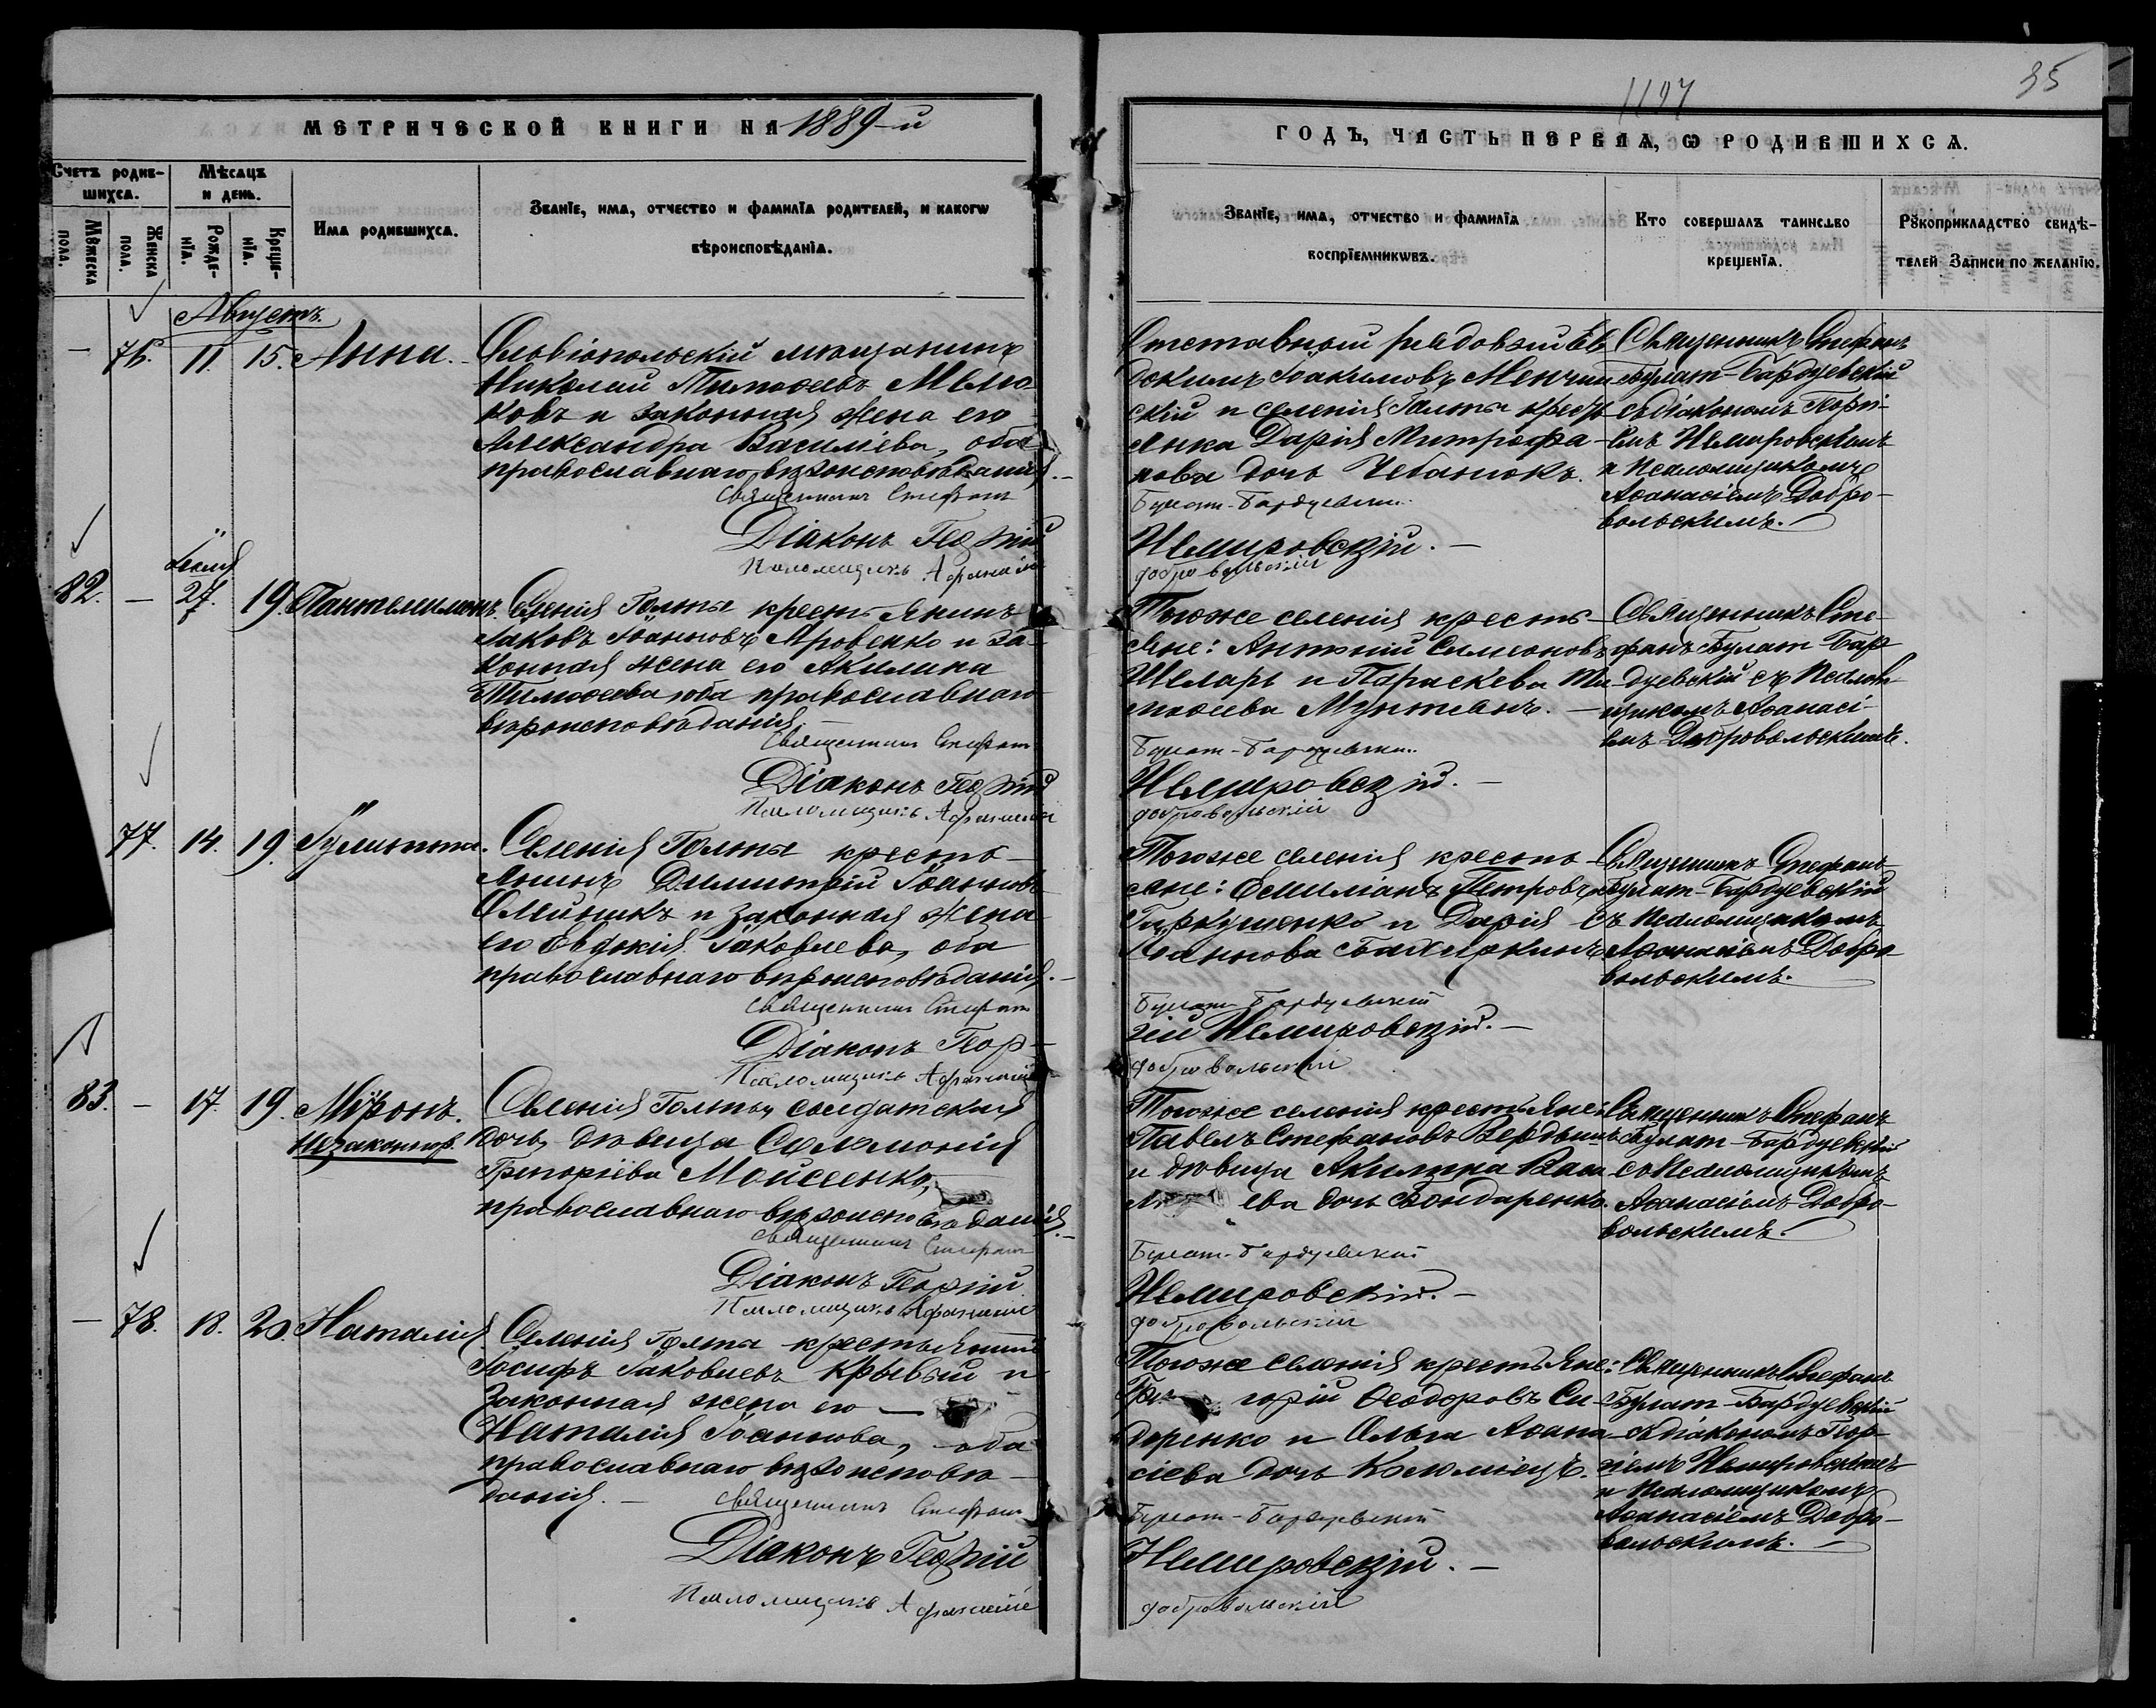 35
1197
МЕТРИЧЕСКОЙ КНИГИ НА 1889-й
ГОДЪ, ЧАСТЬ ПЕРВАЯ, Ѡ РОДИВШИХСѦ.
Счетъ родив-
шихсѧ.
Мѣсѧцъ
и день.
Мꙋжеска
пола.
Женска
пола.
Рожде-
нїѧ.
Креще-
нїѧ.
Имѧ родившихсѧ.
Званїе, имѧ, отчество и фамилїѧ родителей, и какогѡ
вѣроисповѣданїѧ.
Званїе, имѧ, отчество и фамилїѧ
воспрїемникѡвъ.
Кто совершалъ таинство
крещенїѧ.
Рꙋкоприкладство свидѣ-
телей записи по желанїю.
Августъ.
— 76. 11. 15. Анна.
Ольвіопольскій мѣщанинъ
Николай Тимоѳеевъ
и законная жена его
Александра Василіева, оба
православнаго вѣроисповѣданія.—
Священникъ Стефанъ
Діаконъ Георгій
Псаломщикъ Афанасій
Отставной рядовой Ев-
докимъ Іоакимовъ
скій и селенія Голты кресть-
янка Дарія Митрофа-
нова дочь Чебанюкъ.
Булат-Бардуевскій
Немировскій.—
Добровольскій
Священникъ Стефанъ
Булат-Бардуевскій
съ діакономъ Георгі-
емъ Немировскимъ
и Псаломщикомъ
Аѳанасіемъ Добро-
вольскимъ.
Іюля
82. — 27. 19. Пантелимонъ.
Селенія Голты крестьянинъ
Іаковъ Іоанновъ Яровенко и за-
конная жена его Акилина
Тимоѳеева оба православнаго
вѣроисповѣданія.—
Священникъ Стефанъ
Діаконъ Георгій
Псаломщикъ Афанасій
Тогоже селенія кресть-
яне: Антоній Симеоновъ
Шеларь и Параскева Ти-
моѳеева Мунтянъ.—
Булат-Бардуевскій
Немировскій.—
Добровольскій
Священникъ Сте-
фанъ Булат-Бар-
дуевскій съ Псалом-
щикомъ Аѳанасі-
емъ Добровольскимъ.
77. 14. 19. Іулитта.
Селенія Голты кресть-
янинъ Димитрій Іоанновъ
Олейникъ и законная жена
его Евдокія Іаковлева, оба
православнаго вѣроисповѣданія.—
Священникъ Стефанъ
Діаконъ Геор-
Псаломщикъ Афанасій
Тогоже селенія кресть-
яне: Емиліанъ Петровъ
и Дарія
Іоаннова
Булат-Бардуевскій
гій Немировскій.—
Добровольскій
Священникъ Стефанъ
Булат-Бардуевскій
съ Псаломщикомъ
Аѳанасіемъ Добро-
вольскимъ.
83. — 17. 19. Мѵронъ.
незаконнор.
Селенія Голты солдатская
дочь, дѣвица Соломонія
Григоріева Мойсеенко,
православнаго вѣроисповѣданія.—
Священникъ Стефанъ
Діаконъ Георгій
Псаломщикъ Афанасій
Тогоже селенія крестьяне:
Павелъ Стефановъ
и дѣвица Акилина Васи-
ева дочь Бондаренко.
Булат-Бардуевскій
Немировскій.—
Добровольскій
Священникъ Стефанъ
Булат-Бардуевскій
съ Псаломщикомъ
Аѳанасіемъ Добро-
вольскимъ.
— 78. 18. 20. Наталія.
Селенія Голты крестьянинъ
Іосифъ Іаковлевъ Крывый и
законная жена его —
Наталія Іоаннова, оба
православнаго вѣроисповѣ-
данія.—
Священникъ Стефанъ
Діаконъ Георгій
Псаломщикъ Афанасій
Тогоже селенія крестьяне:
Гри горій Ѳеодоровъ Си-
доренко и Ольга Аѳана-
сіева дочь Коломіецъ.
Булат-Бардуевскій
Немировскій.—
Добровольскій
Священникъ Стефанъ
Булат-Бардуевскій
съ діакономъ Геор-
гіемъ Немировскимъ
и Псаломщикомъ
Аѳанасіемъ Добро-
вольскимъ.—